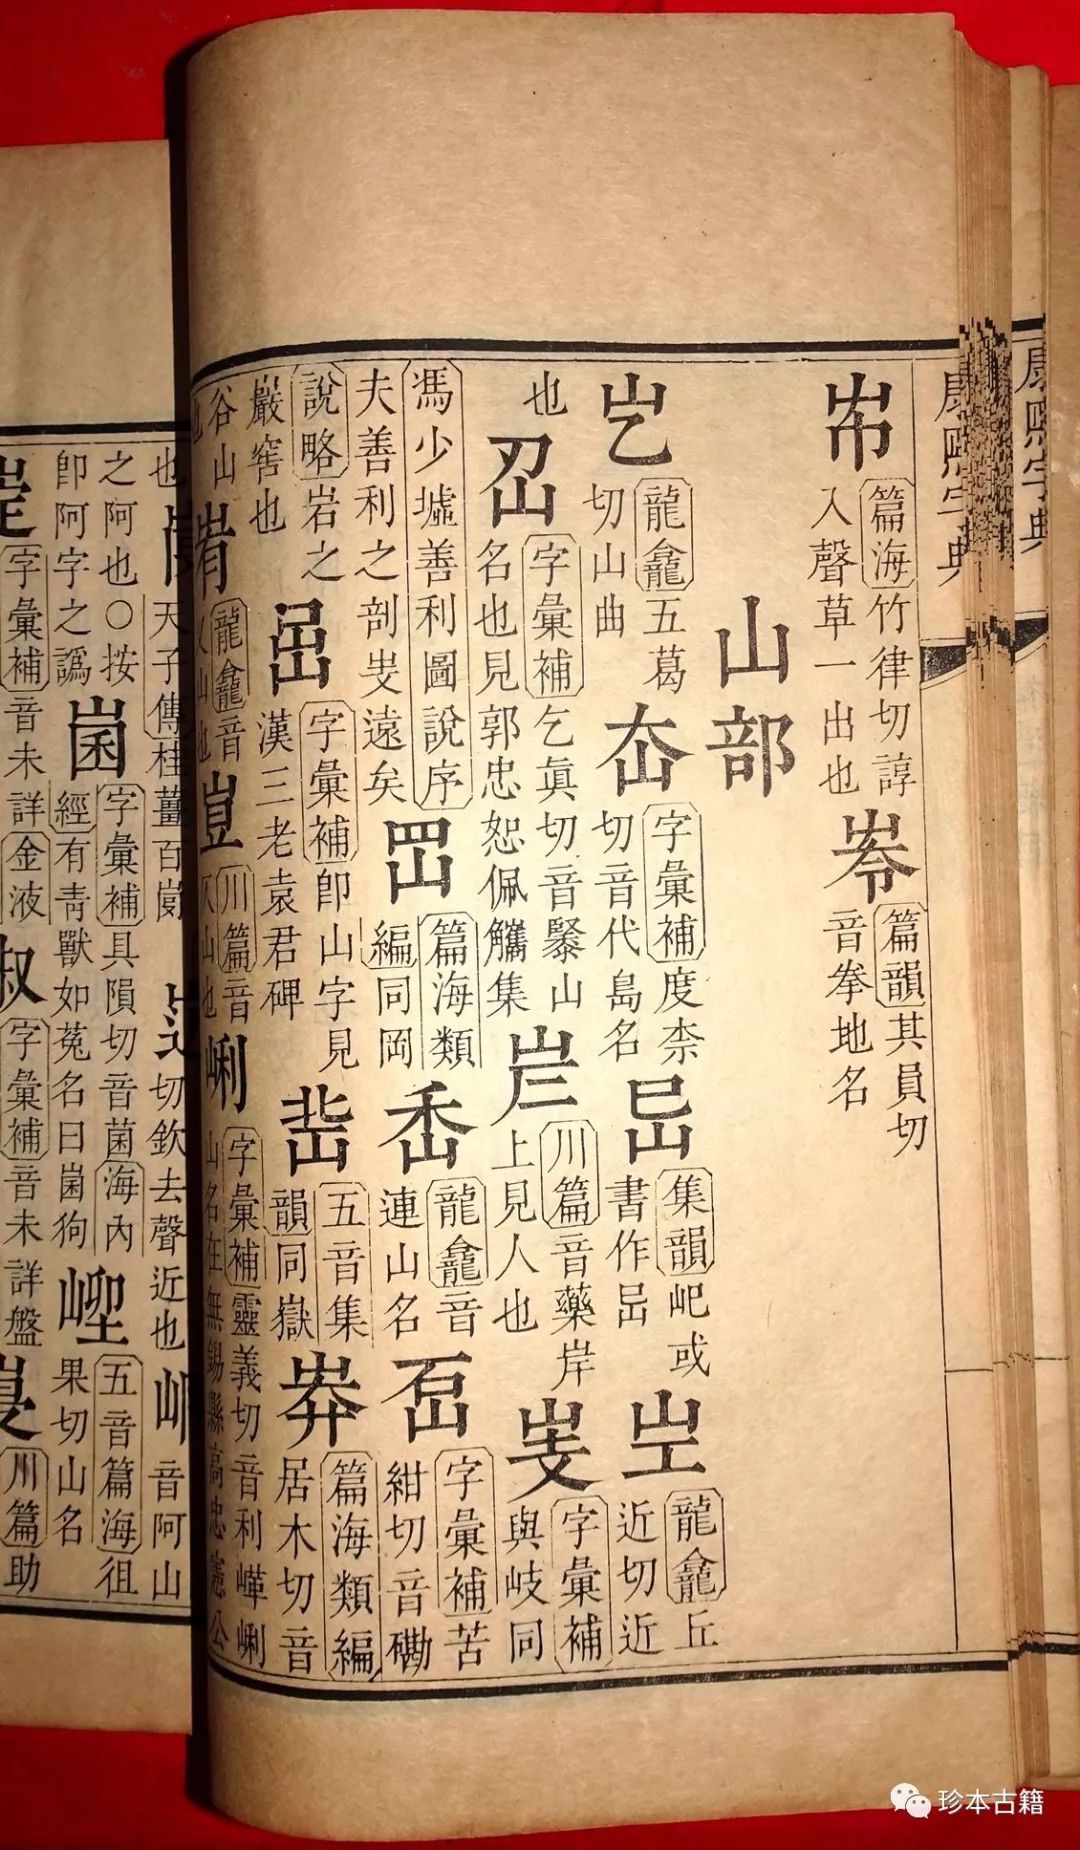 康熙字典
康熙字典
篇海竹律切諄
入聲草一出也
篇韻其員切
音拳地名
山部
龍龕五葛
切山曲
字彙補度柰
切音代島名
集韻屺或
書作
龍龕丘
近切近
也
字彙補乞眞切音繄山
名也見郭忠恕佩觿集
川篇音藥岸
上見人也
字彙補
與岐同
馮少墟善利圖說序
夫善利之剖遠矣
篇海類
編同岡
龍龕音
連山名
字彙補苦
紺切音磡
說略岩之
巖窖也
字彙補卽山字見
漢三老袁君碑
五音集
韻同嶽
篇海類編
居木切音
谷山
也
龍龕音
又山也
川篇音
仄山也
峢
字彙補靈義切音利嶧峢
山名在無錫縣高忠憲公
也
天子傳桂薑百
切欽去聲近也
音阿山
之阿也○按
卽阿字之譌
字彙補具隕切音菌海內
經有靑獸如菟名曰狗
五音篇海徂
果切山名
字彙補音未
詳金液
字彙補音未
詳盤
川篇助
珍本古籍